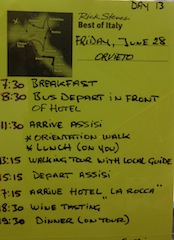 DAY 13
Rick Steves'
Best of Italy
FRIDAY, JUNE 28
ORVIETO
7:30 BREAKFAST
8:30 BUS DEPART IN FRONT
OF HOTEL
11:30 ARRIVE ASSISI
* ORIENTATION WALK
* LUNCH (ON YOU)
13:15 WALKING TOUR WITH LOCAL GUIDE
15:15 DEPART ASSISI
17:15 ARRIVE HOTEL "LA ROCCA"
18:30 WINE TASTING
19:30 DINNER (ON TOUR)